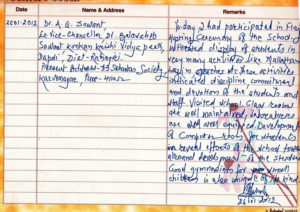 Date
Name & Address
Remarks
26.01.2012
Dr. A. G. Sawant
Ex Vice-Chancellor Dr. Balasaheb
Sawant Konkan Krishi Vidyapeeth,
Dapoli, Dist-Ratnagiri
Present Address - 53 Society
Karvenagar, Pune-411052
Today I had participated in Flag
Hoisting Ceremony of the School &
witnessed display of students in
very many activities like Mallakhamb
etc. These activities
indicated discipline, commitment
and devotion of the students and
staff. Visited school. Class rooms
are well maintained, laboratories
are well equipped. Development
of Computer room for students
school
development of the students
Good gymnasium for small
children is also unique of its kind.
26/01/2012